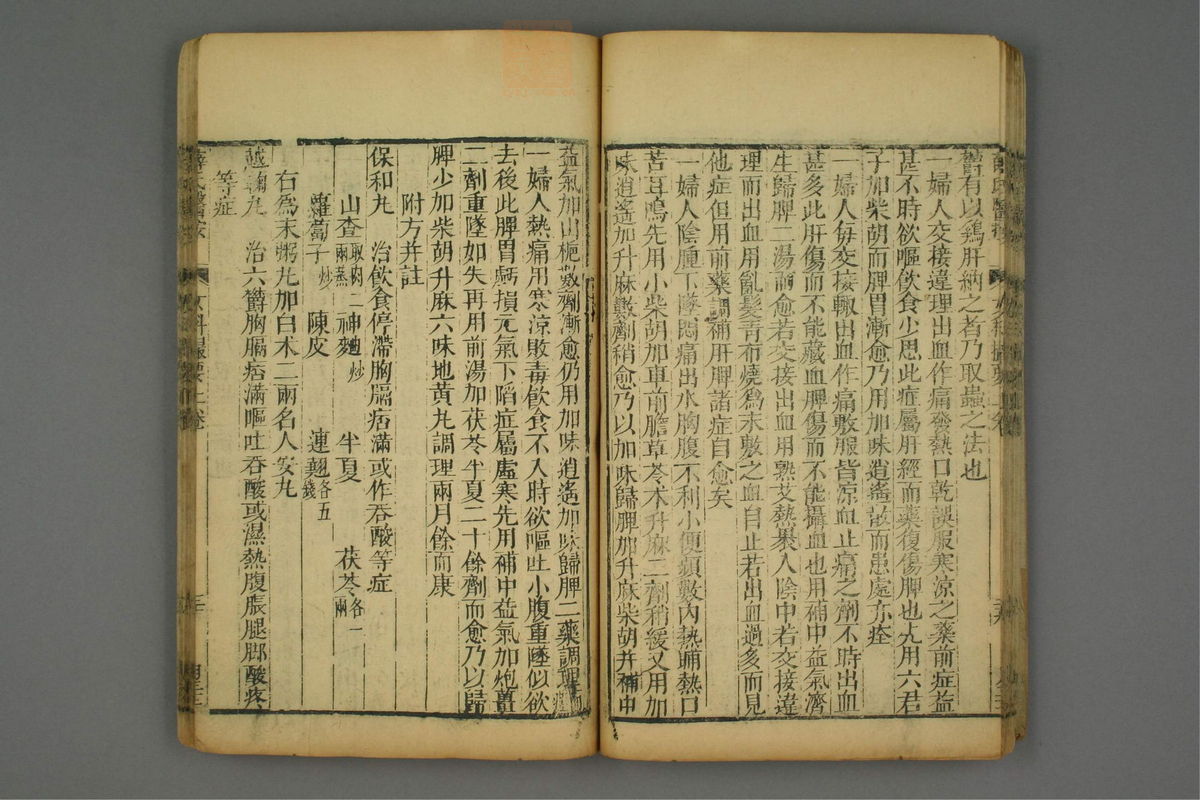 舊有以鷄肝納之者乃取蟲之法也
一婦人交接違理出血作痛發熱口乾誤服寒涼之藥前症益
甚不時欲嘔飲食少思此症屬肝經而藥復傷脾也先用六君
子加柴胡而脾胃漸愈乃用加味逍遙散而患處亦痊
一婦人每交接輒出血作痛敷服皆涼血止痛之劑不時出血
甚多此肝傷而不能藏血脾傷而不能攝血也用補中益氣濟
生歸脾二湯而愈若交接出血用熟艾熱裹入陰中若交接違
理而出血用亂髮青布燒為末敷之血自止若出血過多而見
他症但用前藥調補肝脾諸症自愈矣
一婦人陰腫下墜悶痛出水胸腹不利小便頻數內熱晡熱口
苦耳鳴先用小柴胡加車前膽草苓朮升麻二劑稍緩又用加
味逍遙加升麻數劑稍愈乃以加味歸脾加升麻柴胡并補中
益氣加山梔數劑漸愈仍用加味逍遙加味歸脾二藥調理
一婦人熱痛用寒涼敗毒飲食不入時欲嘔吐小腹重墜似欲
去後此脾胃虧損元氣下陷症屬虛寒先用補中益氣加炮薑
二劑重墜如失再用前湯加茯苓半夏二十餘劑而愈乃以歸
脾少加柴胡升麻六味地黃丸調理兩月餘而康
附方并註
保和丸 治飲食停滯胸膈痞滿或作吞酸等症
山查取肉二兩蒸 神麯炒 半夏 茯苓各一兩
蘿蔔子炒 陳皮 連翹各五錢
右為末粥丸加白朮二兩名人安丸
越鞠丸 治六鬱胸膈痞滿嘔吐吞酸或濕熱腹脹腿脚酸疼
等症
女科撮要上卷